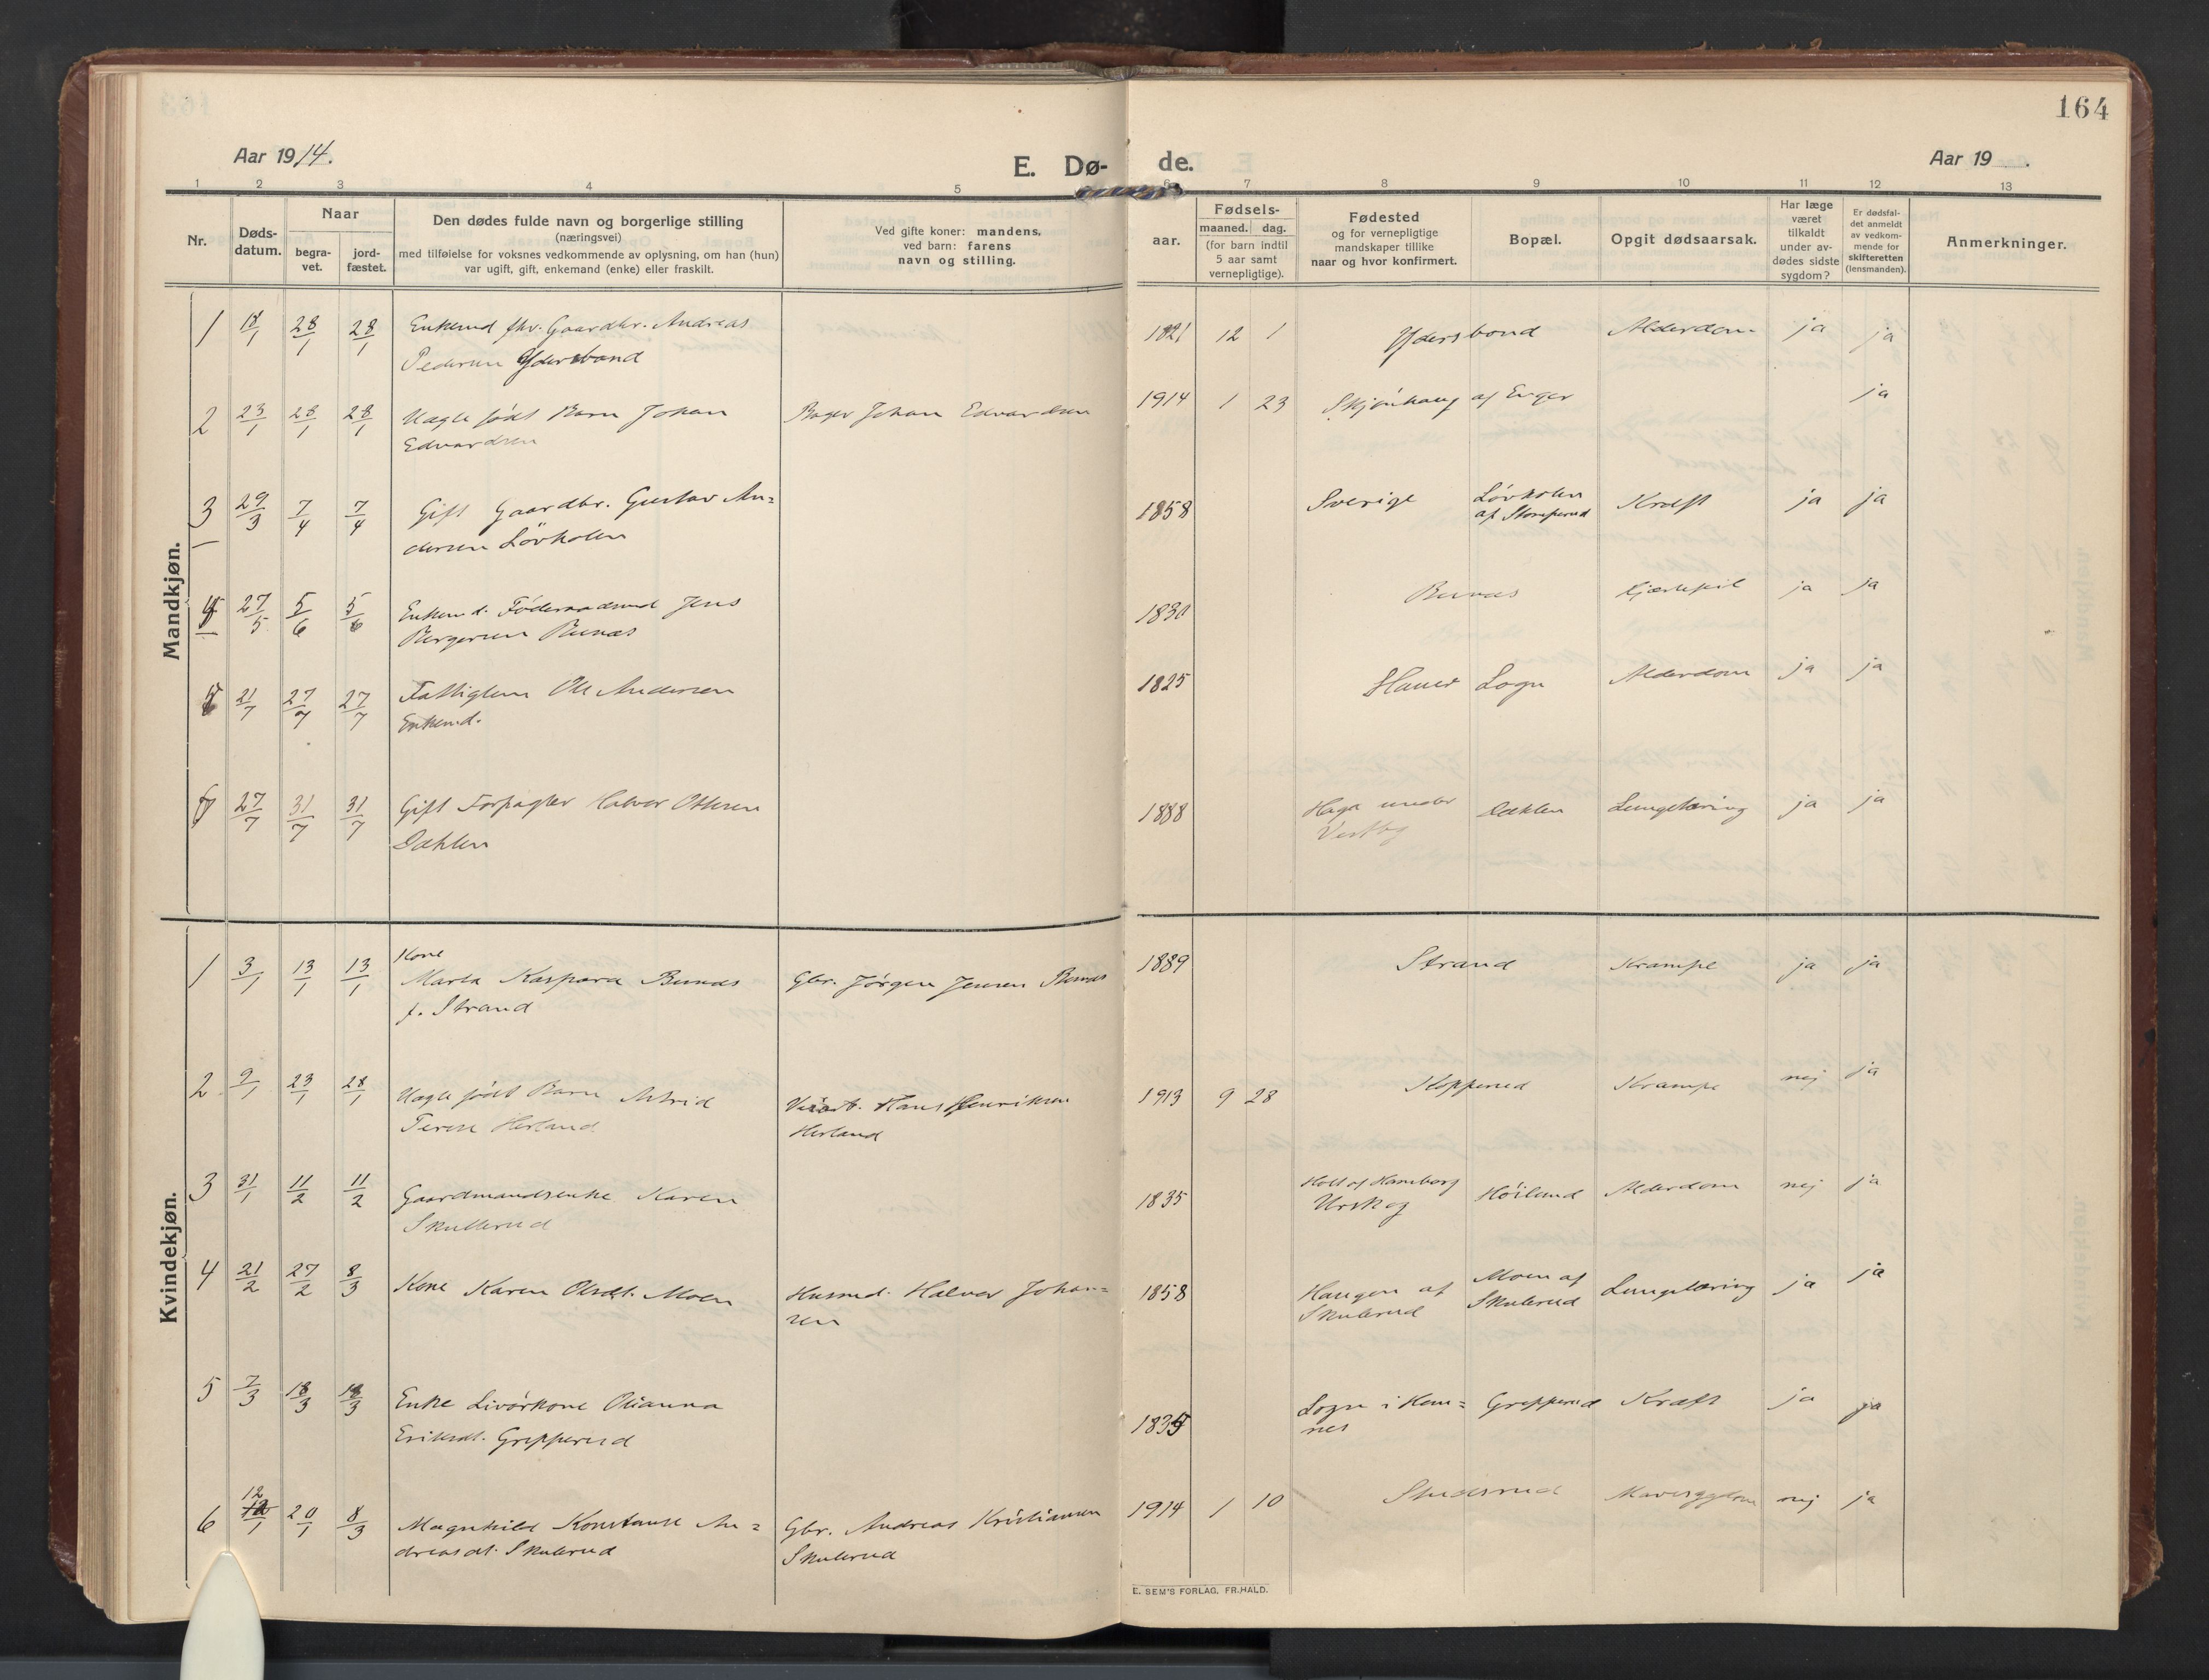 164
Aar 1914.
E. Dø-
de.
Aar 19 .
1 2 3 4 5 6 7 8 9 10 11 12 13
Nr.
Døds-
datum.
Naar
begra-
vet.
jord-
fæstet.
Den dødes fulde navn og borgerlige stilling
(næringsvei)
med tilføielse for voksnes vedkommende av oplysning, om han (hun)
var ugift, gift, enkemand (enke) eller fraskilt.
Ved gifte koner: mandens,
ved barn: farens
navn og stilling.
Fødsels-
aar.
maaned. dag.
(for barn indtil
5 aar samt
vernepligtige).
Fødested
og for vernepligtige
mandskaper tillike
naar og hvor konfirmert.
Bopæl.
Opgit dødsaarsak.
Har læge
været
tilkaldt
under av-
dødes sidste
sygdom?
Er dødsfal-
det anmeldt
av vedkom-
mende for
skifteretten
(lensmanden).
Anmerkninger.
Mandkjøn.
1 18/1 28/1 28/1 Enkemd fhv. Gaardbr. Andreas 1821 12 1 Ydersbond Alderdom ja ja
Pedersen Ydersbond
2 23/1 28/1 28/1 Uægte født Barn Johan Bager Johan Edvardsen 1914 1 23 Skjønhaug af Enger ja
Edvardsen
3 29/3 7/4 7/4 Gift Gaardbr. Gustav An= 1858 Sverige Løvholen Kræft ja ja
af Stomperud
dersen Løvholen
27/5 5/6 5/6 Enkemd. Føderaadsmd Jens 1830 Bunæs Hjertefeil ja ja
Bergersen Bunæs
21/7 27/7 27/7 Fattiglem Ole Andersen 1825 Sogn Alderdom ja ja
Enkemd.
27/7 31/7 31/7 Gift Forpagter Halvor Ottesen 1888 Haga under Dahlen Lungetæring ja ja
Vestby
Dahlen
Kvindekjøn.
Kone
1 3/1 13/1 13/1 Marta Kaspara Bunæs Gbr. Jørgen Jensen Bunæs 1889 Strand Krampe ja ja
f. Strand
2 9/1 23/1 28/1 Uægte født Barn Astrid Hans Henriksen 1913 9 28 Kopperud Krampe nej ja
Terese Herland
Herland
3 31/1 11/2 11/2 Gaardmandsenke Karen 1835 Holt af Hamborg Høiland Alderdom nej ja
Urskog
Skullerud
4 21/2 27/2 8/3 Kone Karen Olsdt. Moen Husmd. Halvor Johan= 1858 Haugen af Moen af Lungetæring ja ja
sen
Skulerud Skulerud
5 7/3 18/3 18/3 Enke Olianna Sogn i Hem= Grepperud Kræft ja ja
nes
Eriksdt. Grepperud
6 12/1 20/1 8/3 Magnhild Konstanse An= Gbr. Andreas Kristiansen 1914 1 10 Mavesygdom nej ja
dreasdt. Skulerud Skulerud
E. SEM'S FORLAG, FR.HALD.